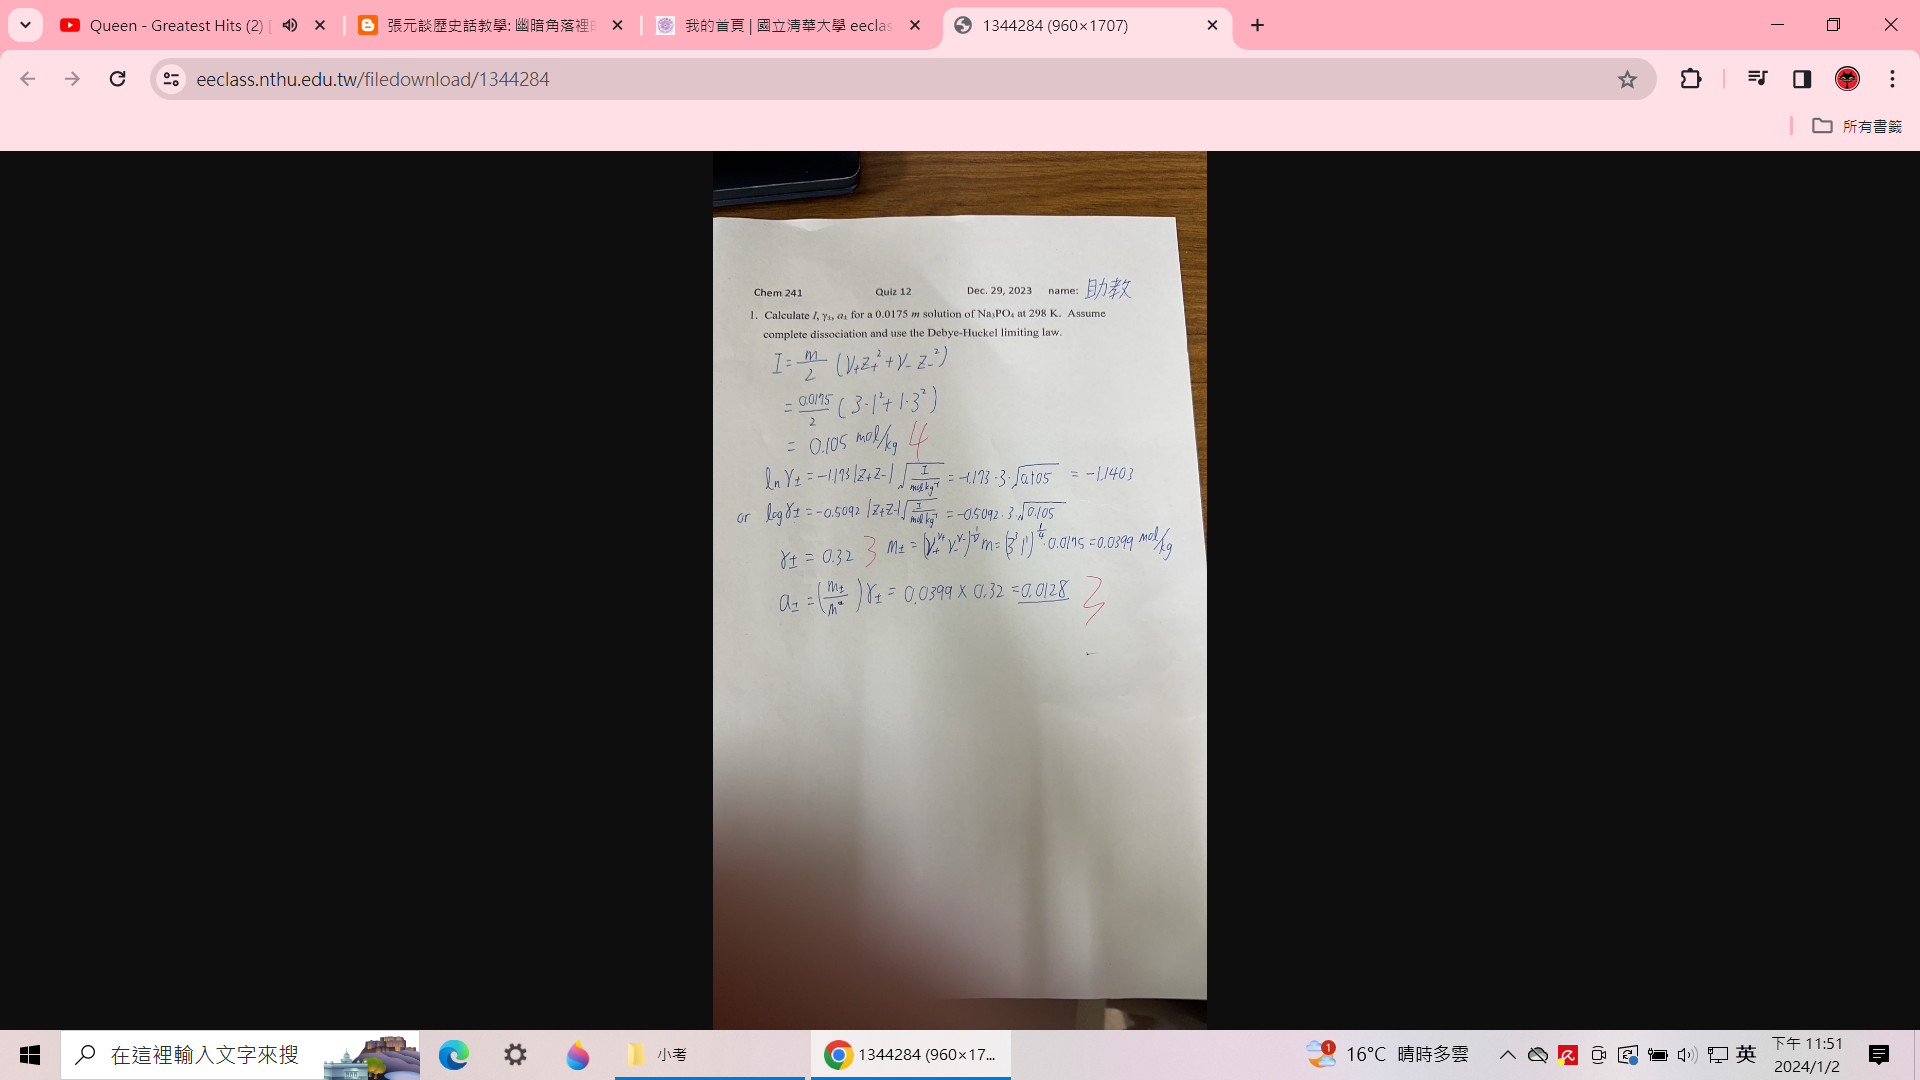 Queen - Greatest Hits (2) [
張元談歷史話教學: 幽暗角落裡
我的首頁 | 國立清華大學 eeclas
1344284 (960×1707)
eeclass.nthu.edu.tw/filedownload/1344284
所有書籤
Chem 241 Quiz 12 Dec. 29, 2023 name: 助教
1. Calculate I, γ±, a± for a 0.0175 m solution of Na₃PO₄ at 298 K. Assume
complete dissociation and use the Debye-Huckel limiting law.
I = m/2 (ν₊z₊² + ν₋z₋²)
= 0.0175/2 (3·1² + 1·3²)
= 0.105 mol/kg 4
ln γ± = -1.173 |z₊z₋| √(I/mol kg⁻¹) = -1.173·3·√0.105 = -1.1403
or log γ± = -0.5092 |z₊z₋| √(I/mol kg⁻¹) = -0.5092·3·√0.105
γ± = 0.32 3 m± = (ν₊^ν₊ ν₋^ν₋)^(1/ν) m = (3³ 1¹)^(1/4)·0.0175 = 0.0399 mol/kg
a± = (m±/m°) γ± = 0.0399 × 0.32 = 0.0128 3
在這裡輸入文字來搜
小考
1344284 (960×17...
1
16°C 晴時多雲
英
下午 11:51
2024/1/2